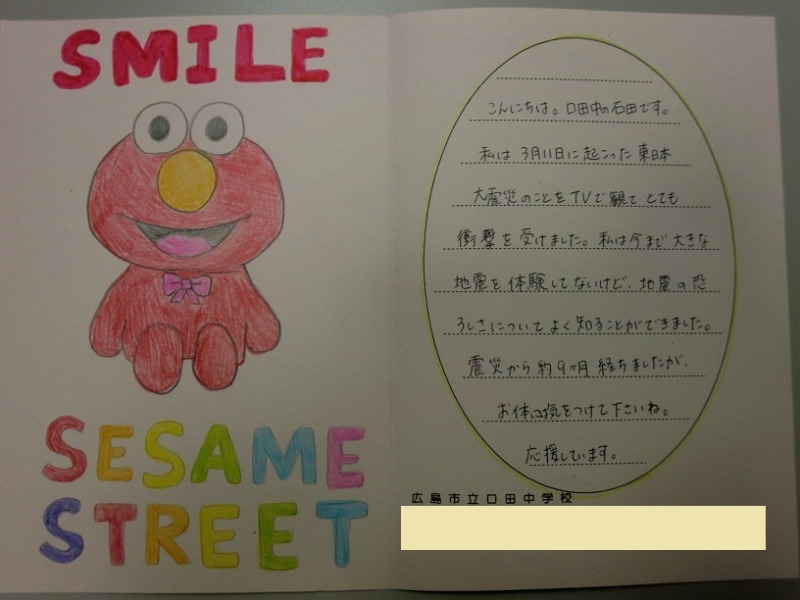 SMILE
SESAME
STREET
こんにちは。口田中の石田です。
私は3月11日に起こった東日本
大震災のことをTVで観てとても
衝撃を受けました。私は今まで大きな
地震を体験してないけど、地震の恐
ろしさについてよく知ることができました。
震災から約9ヶ月経ちましたが、
お体に気をつけて下さいね。
応援しています。
広島市立口田中学校